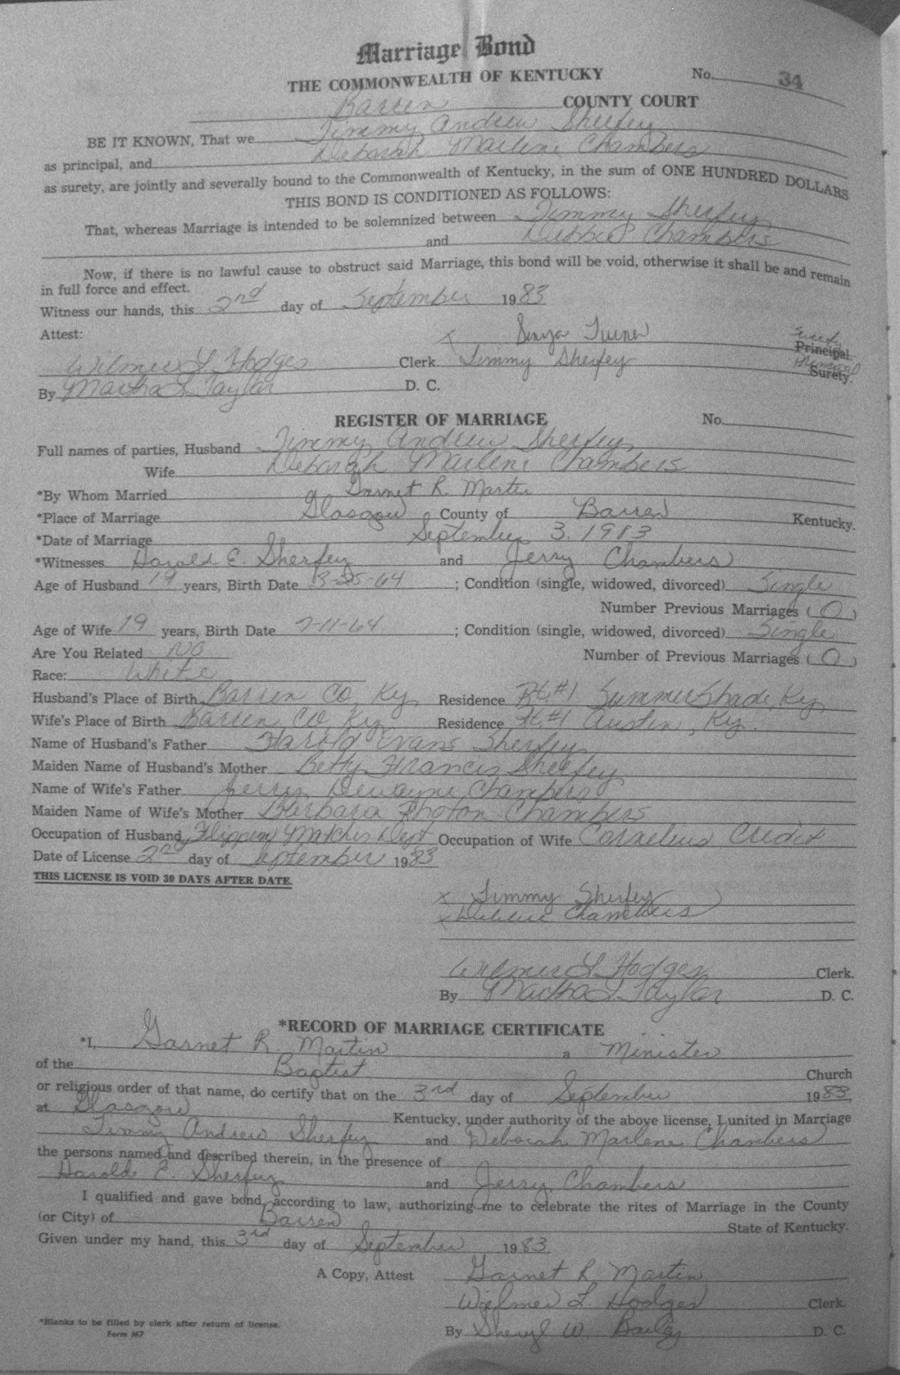 Marriage Bond
THE COMMONWEALTH OF KENTUCKY No. 34
Barren COUNTY COURT
BE IT KNOWN, That we Timmy Andrew Sherfey
as principal, and Deborah Marlene Chambers
as surety, are jointly and severally bound to the Commonwealth of Kentucky, in the sum of ONE HUNDRED DOLLARS
THIS BOND IS CONDITIONED AS FOLLOWS:
That, whereas Marriage is intended to be solemnized between Timmy Sherfey
and Chambers
Now, if there is no lawful cause to obstruct said Marriage, this bond will be void, otherwise it shall be and remain
in full force and effect.
Witness our hands, this 2nd day of September 1983
Attest: x Turner Principal.
Wilmer L Hodges Clerk Timmy Sherfey Surety.
By Martha L Taylor D. C.
REGISTER OF MARRIAGE No.
Full names of parties, Husband Timmy Andrew Sherfey
Wife Deborah Marlene Chambers
*By Whom Married Garnet R. Martin
*Place of Marriage Glasgow County of Barren Kentucky.
*Date of Marriage September 3, 1983
*Witnesses Harold E. Sherfey and Jerry Chambers
Age of Husband 19 years, Birth Date ; Condition (single, widowed, divorced) Single
Number Previous Marriages (0)
Age of Wife 19 years, Birth Date -11-64 ; Condition (single, widowed, divorced) Single
Are You Related No Number of Previous Marriages (0)
Race: White
Husband's Place of Birth Barren Co Ky Residence Rt #1 Summer Shade, Ky
Wife's Place of Birth Barren Co Ky Residence Rt #1 Austin, Ky.
Name of Husband's Father Harold Evans Sherfey
Maiden Name of Husband's Mother Betty Francis Sherfey
Name of Wife's Father Jerry Dewayne Chambers
Maiden Name of Wife's Mother Barbara Rhoton Chambers
Occupation of Husband Dept Occupation of Wife Cornelius Credit
Date of License 2nd day of September 1983
THIS LICENSE IS VOID 30 DAYS AFTER DATE.
x Timmy Sherfey
x Chambers
Wilmer L Hodges Clerk.
By Martha L Taylor D. C.
*RECORD OF MARRIAGE CERTIFICATE
*I, Garnet R Martin a Minister
of the Baptist Church
or religious order of that name, do certify that on the 3rd day of September 1983,
at Glasgow Kentucky, under authority of the above license, I united in Marriage
Timmy Andrew Sherfey and Deborah Marlene Chambers
the persons named and described therein, in the presence of
Harold E. Sherfey and Jerry Chambers
I qualified and gave bond, according to law, authorizing me to celebrate the rites of Marriage in the County
(or City) of Barren State of Kentucky.
Given under my hand, this 3rd day of September 1983
A Copy, Attest Garnet R Martin
Wilmer L. Hodges Clerk.
*Blanks to be filled by clerk after return of license.
Form 967
By Sheryl W. Bailey D. C.